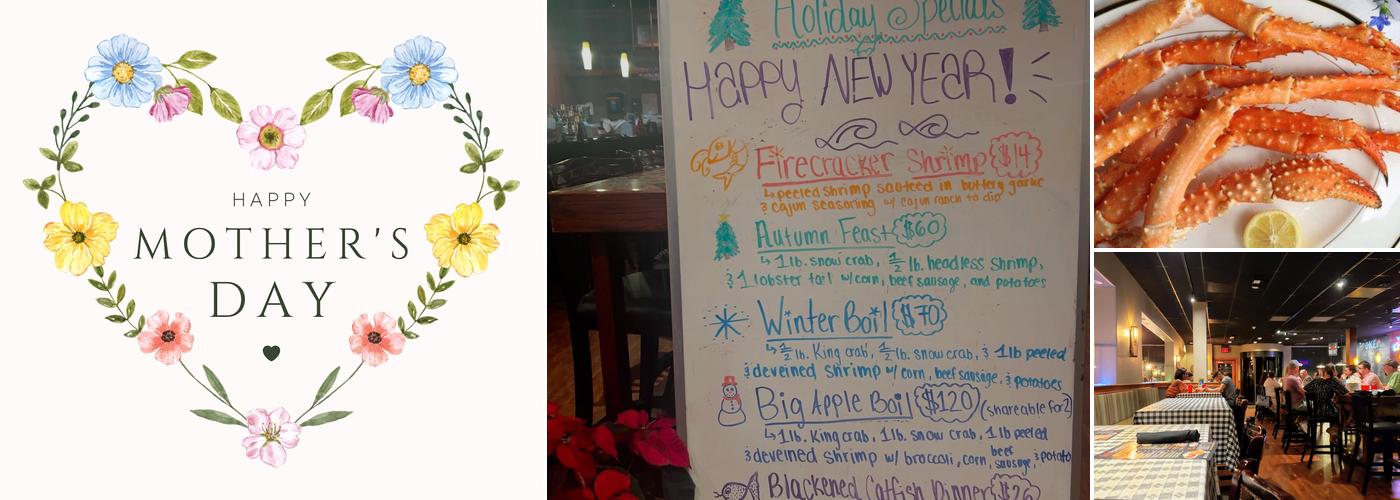 HAPPY
MOTHER'S
DAY
Holiday Specials
HAPPY NEW YEAR!
Firecracker Shrimp $14
↳ peeled shrimp sauteed in buttery garlic
& cajun seasoning w/ cajun ranch to dip
Autumn Feast $60
↳ 1 lb. snow crab, 1/2 lb. headless shrimp,
& 1 lobster tail w/corn, beef sausage, and potatoes
Winter Boil $70
↳ 1/2 lb. King crab, 1/2 lb. snow crab, & 1 lb peeled
& deveined shrimp w/ corn, beef sausage, & potatoes
Big Apple Boil $120 (shareable for 2)
↳ 1 lb. King crab, 1 lb. snow crab, 1 lb peeled
& deveined shrimp w/ broccoli, corn, beef sausage, & potato
Blackened Catfish Dinner $26